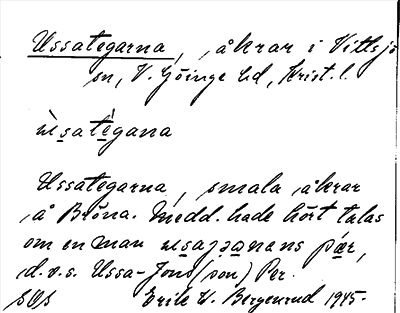 Ussategarna, åkrar i Vittsjö
sn, V. Göinge hd, Krist. l.
ùsatègana
Ussategarna, smala åkrar
å Bröna. Medd. hade hört talas
om en man usajɔanans pær,
d.v.s. Ussa-Jons(son) Per.
SOS Erik W. Bergenrud 1945.